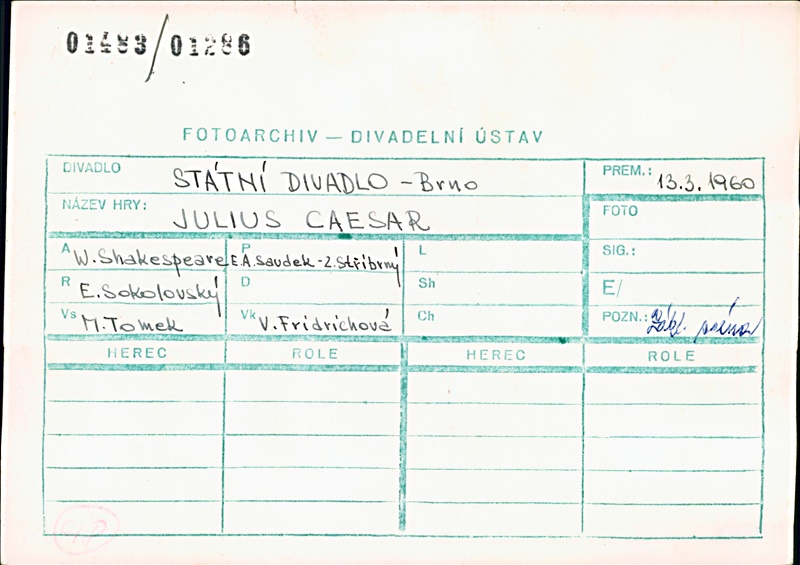 01483/01286
FOTOARCHIV — DIVADELNÍ ÚSTAV
DIVADLO STÁTNÍ DIVADLO – Brno PREM.: 13.3.1960
NÁZEV HRY: JULIUS CAESAR FOTO
A W. Shakespeare P E.A. Saudek - Z. Stříbrný L SIG.:
R E. Sokolovský D Sh E/
Vs M. Tomek Vk V. Fridrichová Ch POZN.:
HEREC ROLE HEREC ROLE